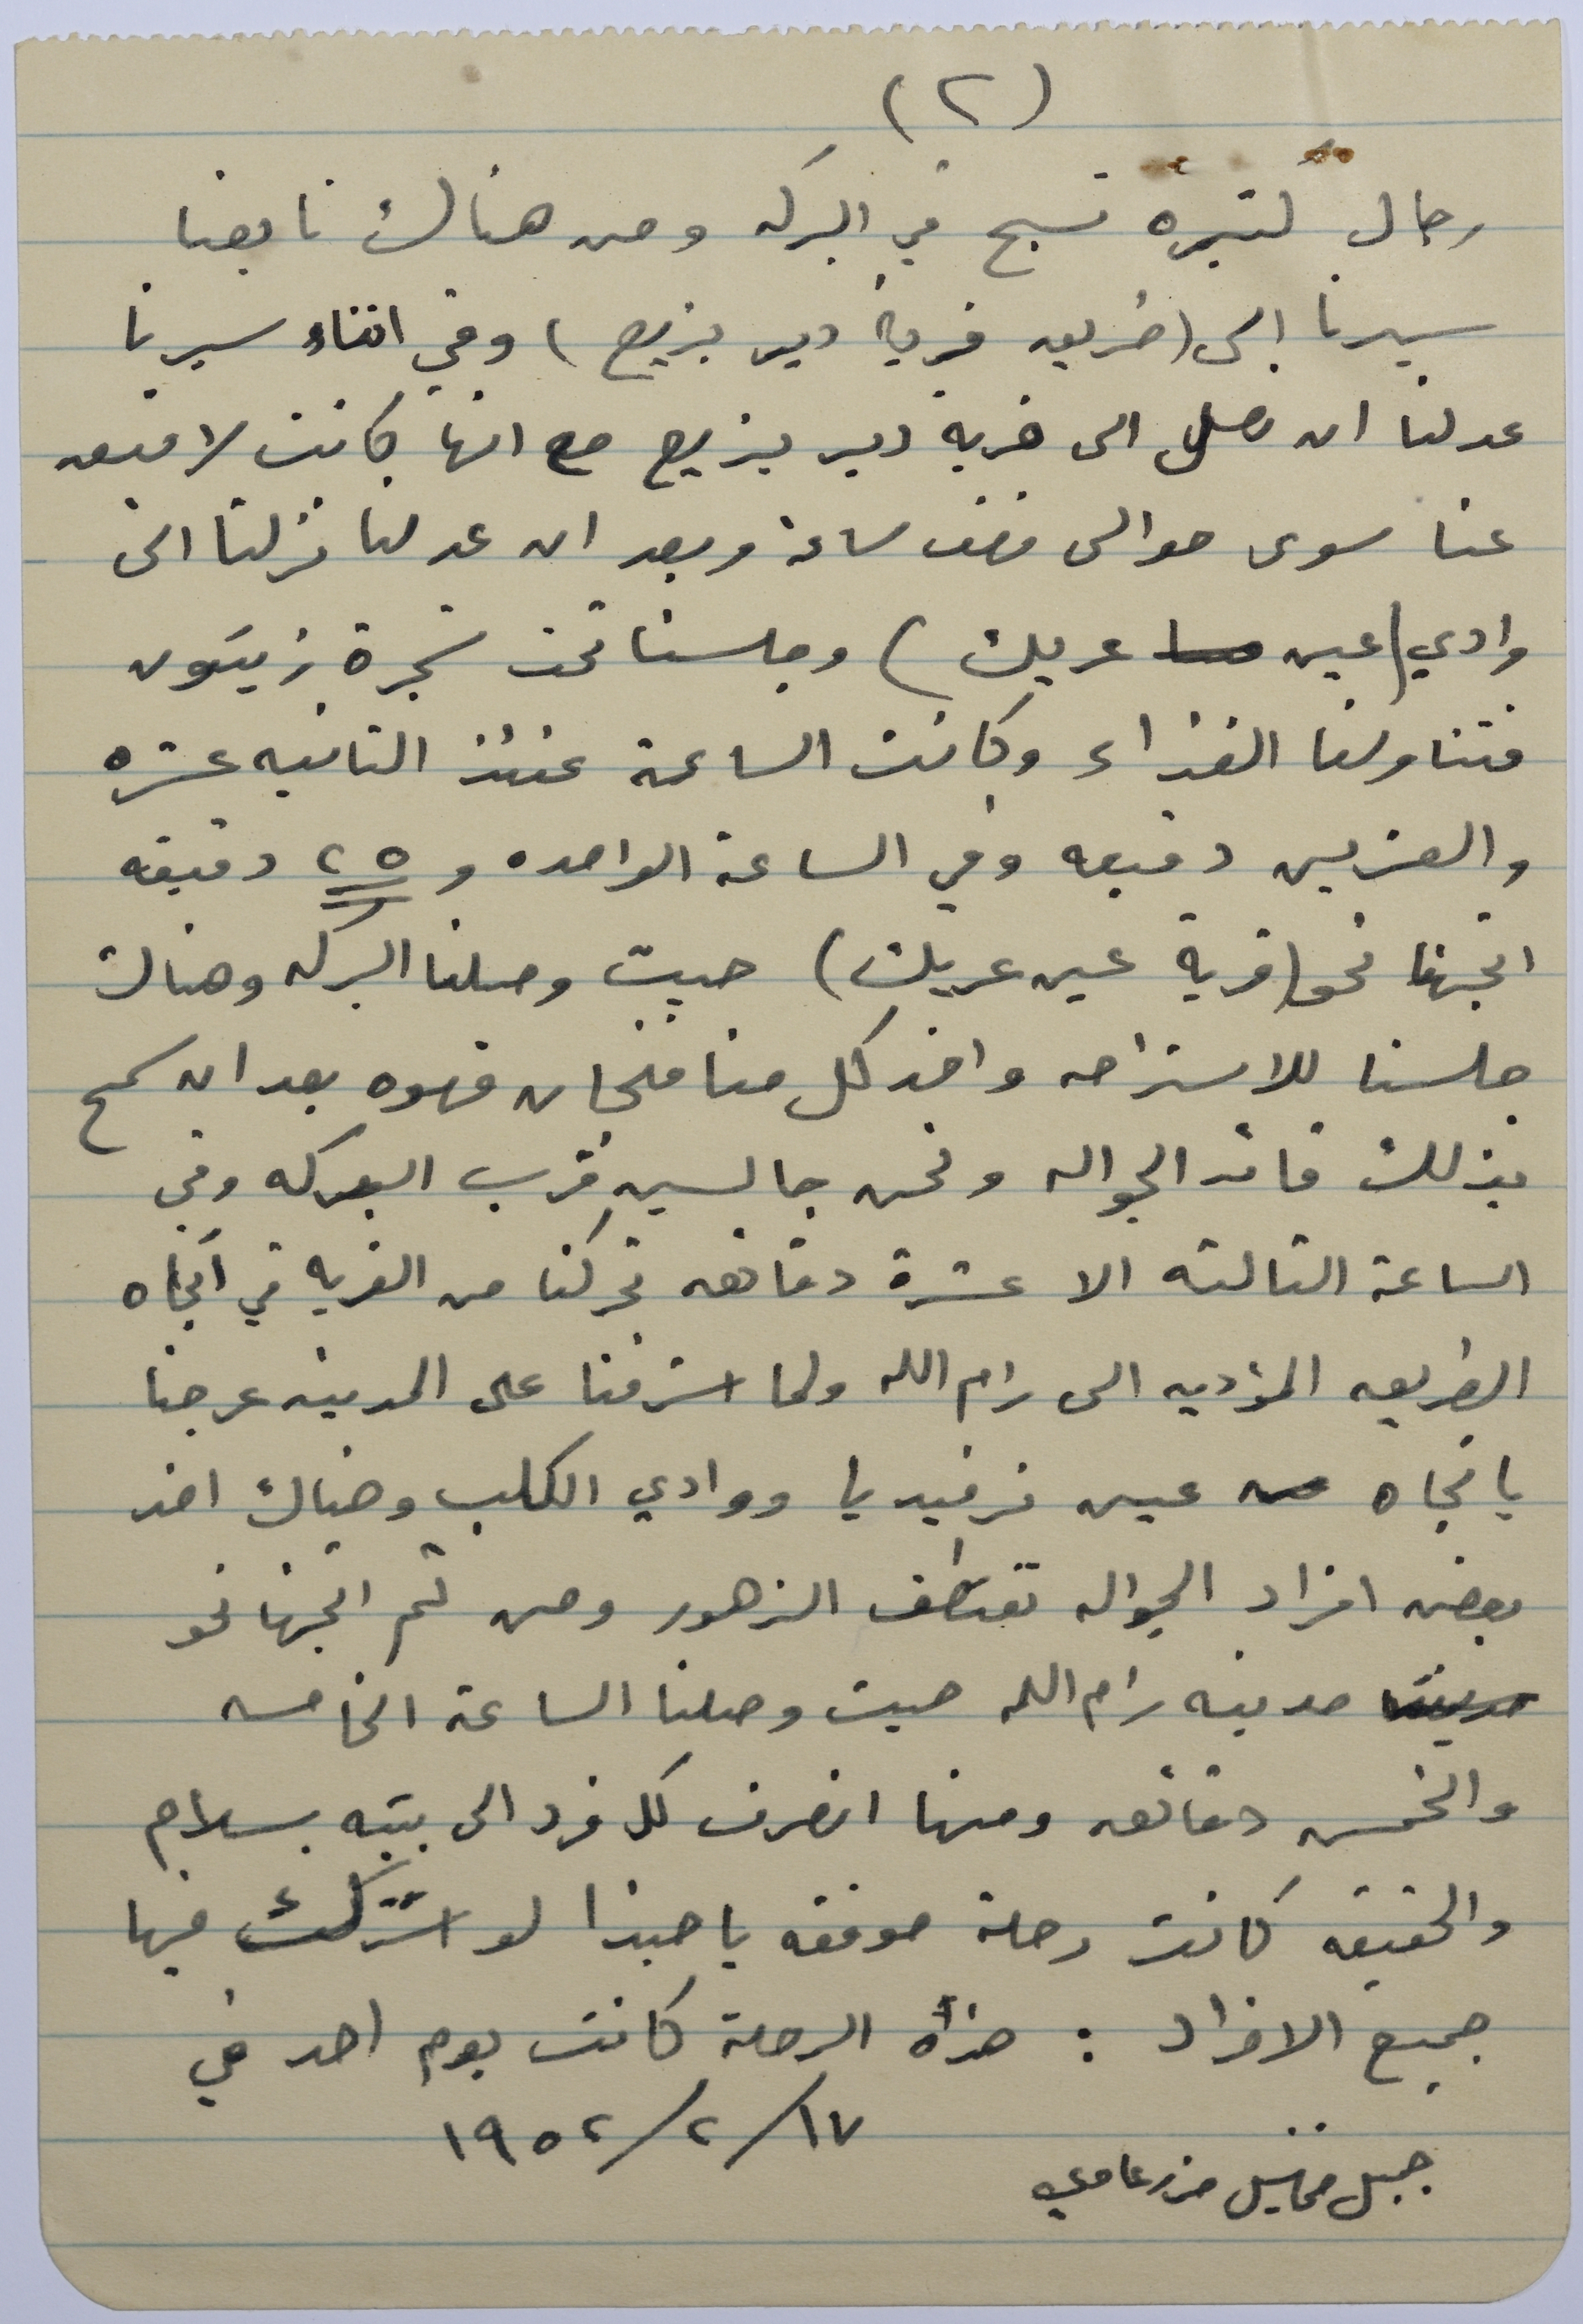 (٢)
رجال كثيره تسبح في البركه ومن هناك تابعنا
سيرنا الى (طريق قرية دير بزيع) وفي اثناء سيرنا
عدلنا ان نصل الى خربة دير بزيع مع انها كانت لا تبعد
عنا سوى حوالى نصف ساعة وبعد ان عدلنا نزلنا الى
وادي (عين عريك) وجلسنا تحت شجرة زيتون
فتناولنا الغذاء وكانت الساعة عندئذ الثانيه عشره
والعشرين دقيقه وفي الساعة الواحده و ٢٥ دقيقه
اتجهنا نحو (قرية عين عريك) حيث وصلنا البركه وهناك
جلسنا للاستراحه واخذ كل منا فنجان قهوه بعد ان سمح
بذلك قائد الجواله ونحن جالسين قرب البركه وفي
الساعة الثالثه الا عشرة دقائق تحركنا من القريه في اتجاه
الطريق المؤديه الى رام الله ولما اشرفنا على المدينه عرجنا
باتجاه عين ترفيديا ووادي الكلب وهناك اخذ
بعض افراد الجواله تقتطف الزهور ومن ثم اتجهنا نحو
مدينه رام الله حيث وصلنا الساعة الخامسه
والخمس دقائق ومنها انصرف كل فرد الى بيته بسلام
والحقيقه كانت رحلة موفقه يا حبذا لو اشتركت فيها
جميع الافراد : هذه الرحلة كانت يوم احد في
١٧/٢/١٩٥٢
جميل مخائيل